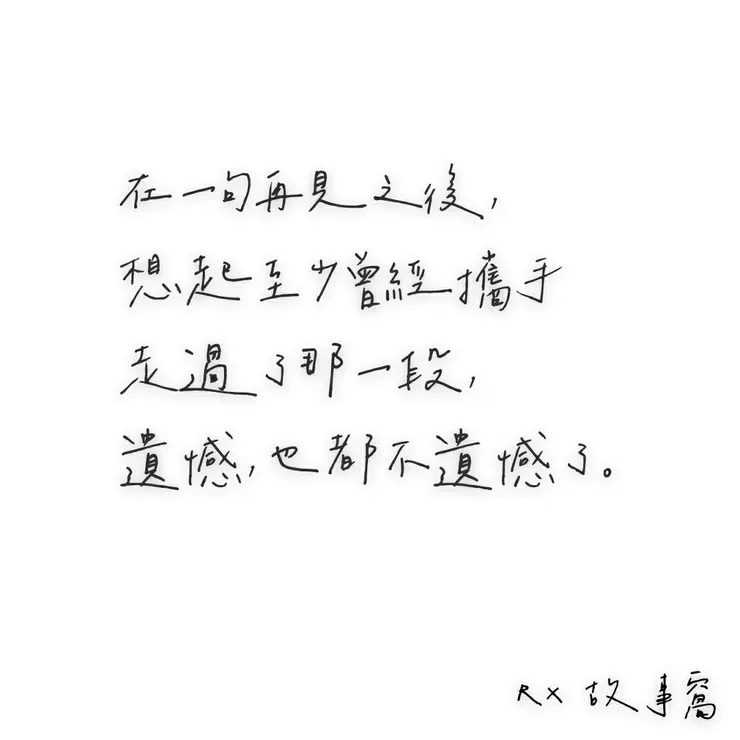 在一句再見之後,
想起至少曾經攜手
走過了那一段,
遺憾,也都不遺憾了。
RX 故事窩